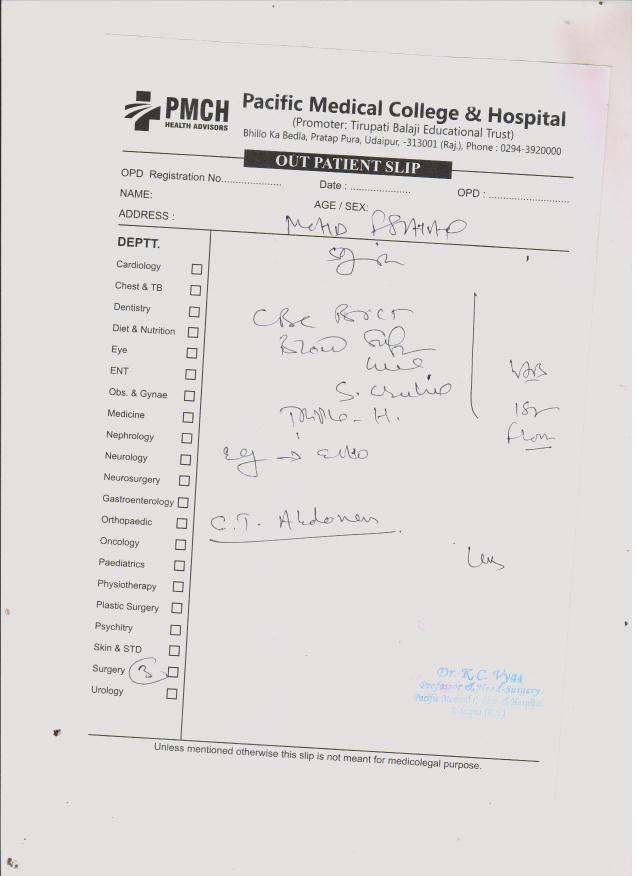 PMCH
HEALTH ADVISORS
Pacific Medical College & Hospital
(Promoter: Tirupati Balaji Educational Trust)
Bhillo Ka Bedla, Pratap Pura, Udaipur, -313001 (Raj.), Phone : 0294-3920000
OUT PATIENT SLIP
OPD Registration No.................... Date : .................... OPD : ...........................
NAME: AGE / SEX:
ADDRESS :
MOHD
DEPTT.
Cardiology
Chest & TB
Dentistry
Diet & Nutrition
Eye
ENT
Obs. & Gynae
Medicine
Nephrology
Neurology
Neurosurgery
Gastroenterology
Orthopaedic
Oncology
Paediatrics
Physiotherapy
Plastic Surgery
Psychitry
Skin & STD
Surgery
Urology
CBC
Blood
Urine
S.
Triple - H.
→
C.T. Abdomen
LAB
Ist
floor
Dr. K.C. Vyas
Professor & Head-Surgery
Pacific Medical College & Hospital
Udaipur (Raj)
Unless mentioned otherwise this slip is not meant for medicolegal purpose.